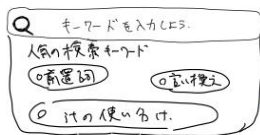 キーワードを入力しよう.
人気の検索キーワード
前置詞 言い換え
itの使い分け.